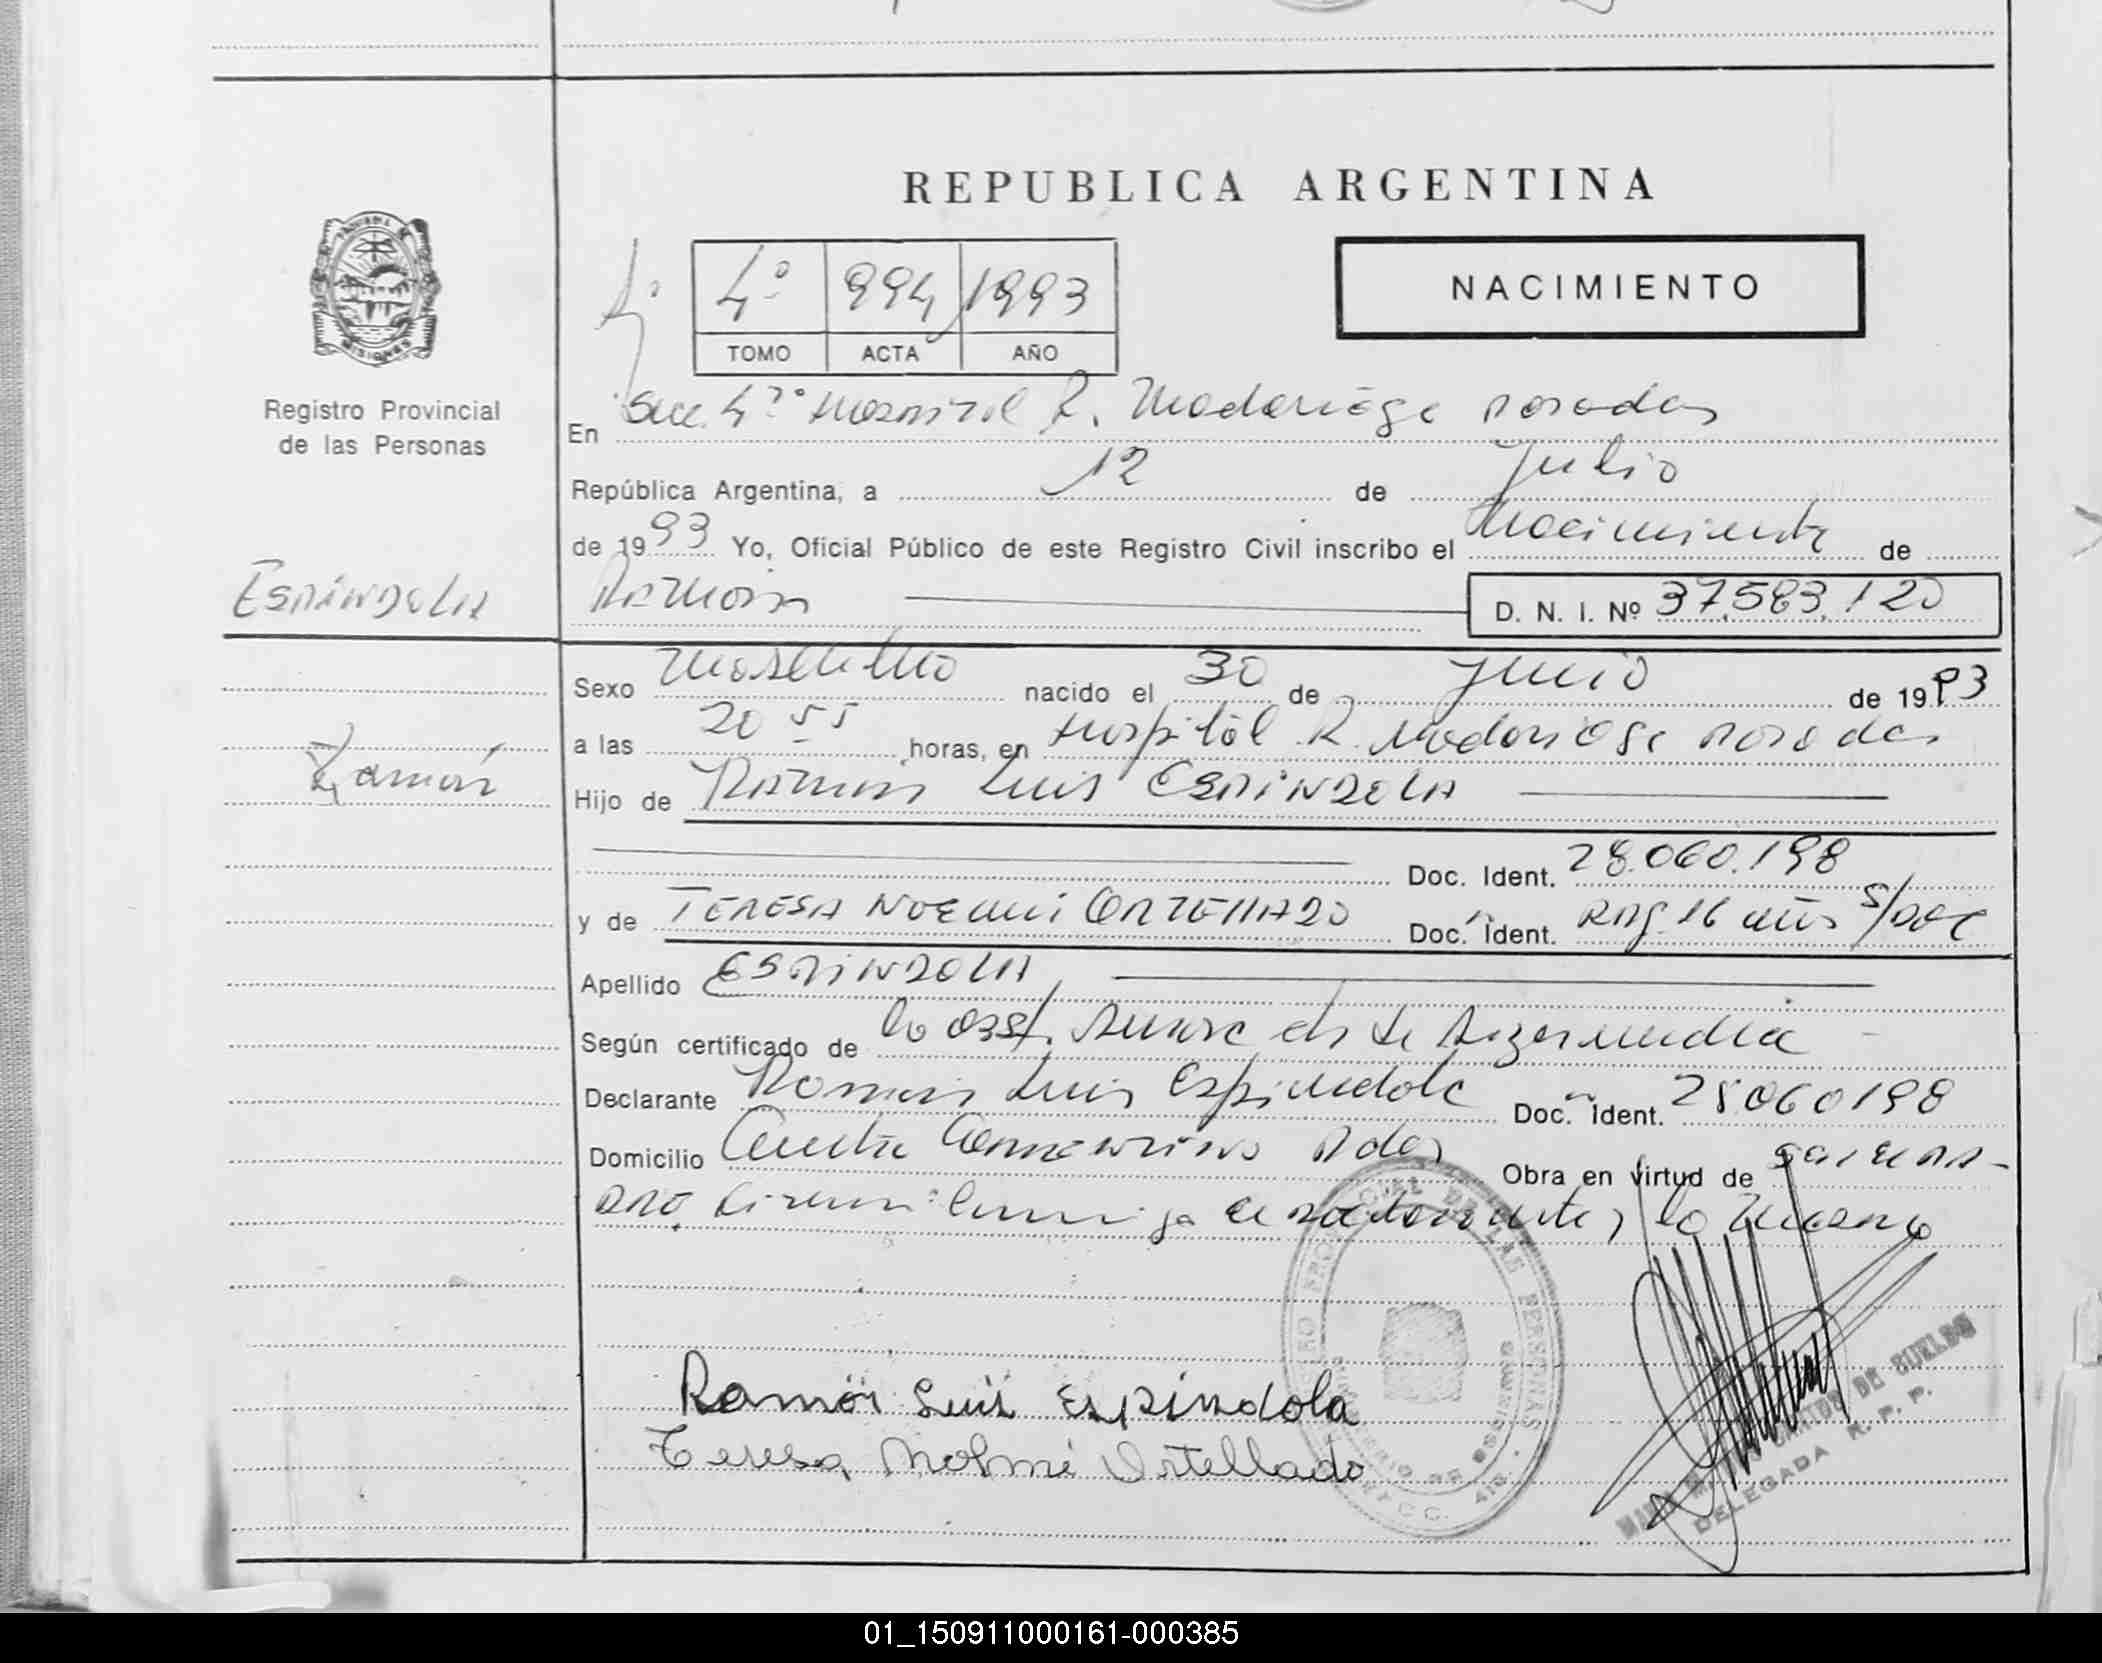 REPUBLICA ARGENTINA
PROVINCIA DE
MISIONES
Registro Provincial
de las Personas
4º 994 1993
TOMO ACTA AÑO
NACIMIENTO
En Secc. 4ta Hospital R. Madariaga Posadas
República Argentina, a 12 de Julio
de 1993 Yo, Oficial Público de este Registro Civil inscribo el Nacimiento de
ESPINDOLA
Ramón
D. N. I. Nº 37.583.120
Sexo Masculino nacido el 30 de Junio de 1993
a las 20 55 horas, en Hospital R. Madariaga Posadas
Ramón
Hijo de Ramón Luis ESPINDOLA
Doc. Ident. 28.060.198
y de TERESA NOEMI ORTELLADO Doc. Ident. Arg. 16 años s/doc
Apellido ESPINDOLA
Según certificado de la Obst. de
Declarante Ramón Luis Espindola Doc. Ident. 28.060198
Domicilio Pdas Obra en virtud de
la
Ramón Luis Espíndola
Teresa Noemí Ortellado
REGISTRO PROVINCIAL DE LAS PERSONAS
DE SUELDO
DELEGADA R. P. P.
01_150911000161-000385